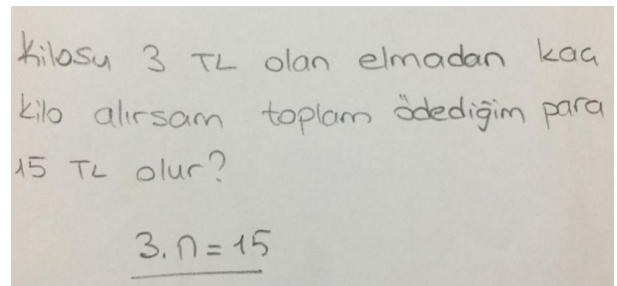 Kilosu 3 TL olan elmadan kaç
kilo alırsam toplam ödediğim para
15 TL olur?
3.n=15